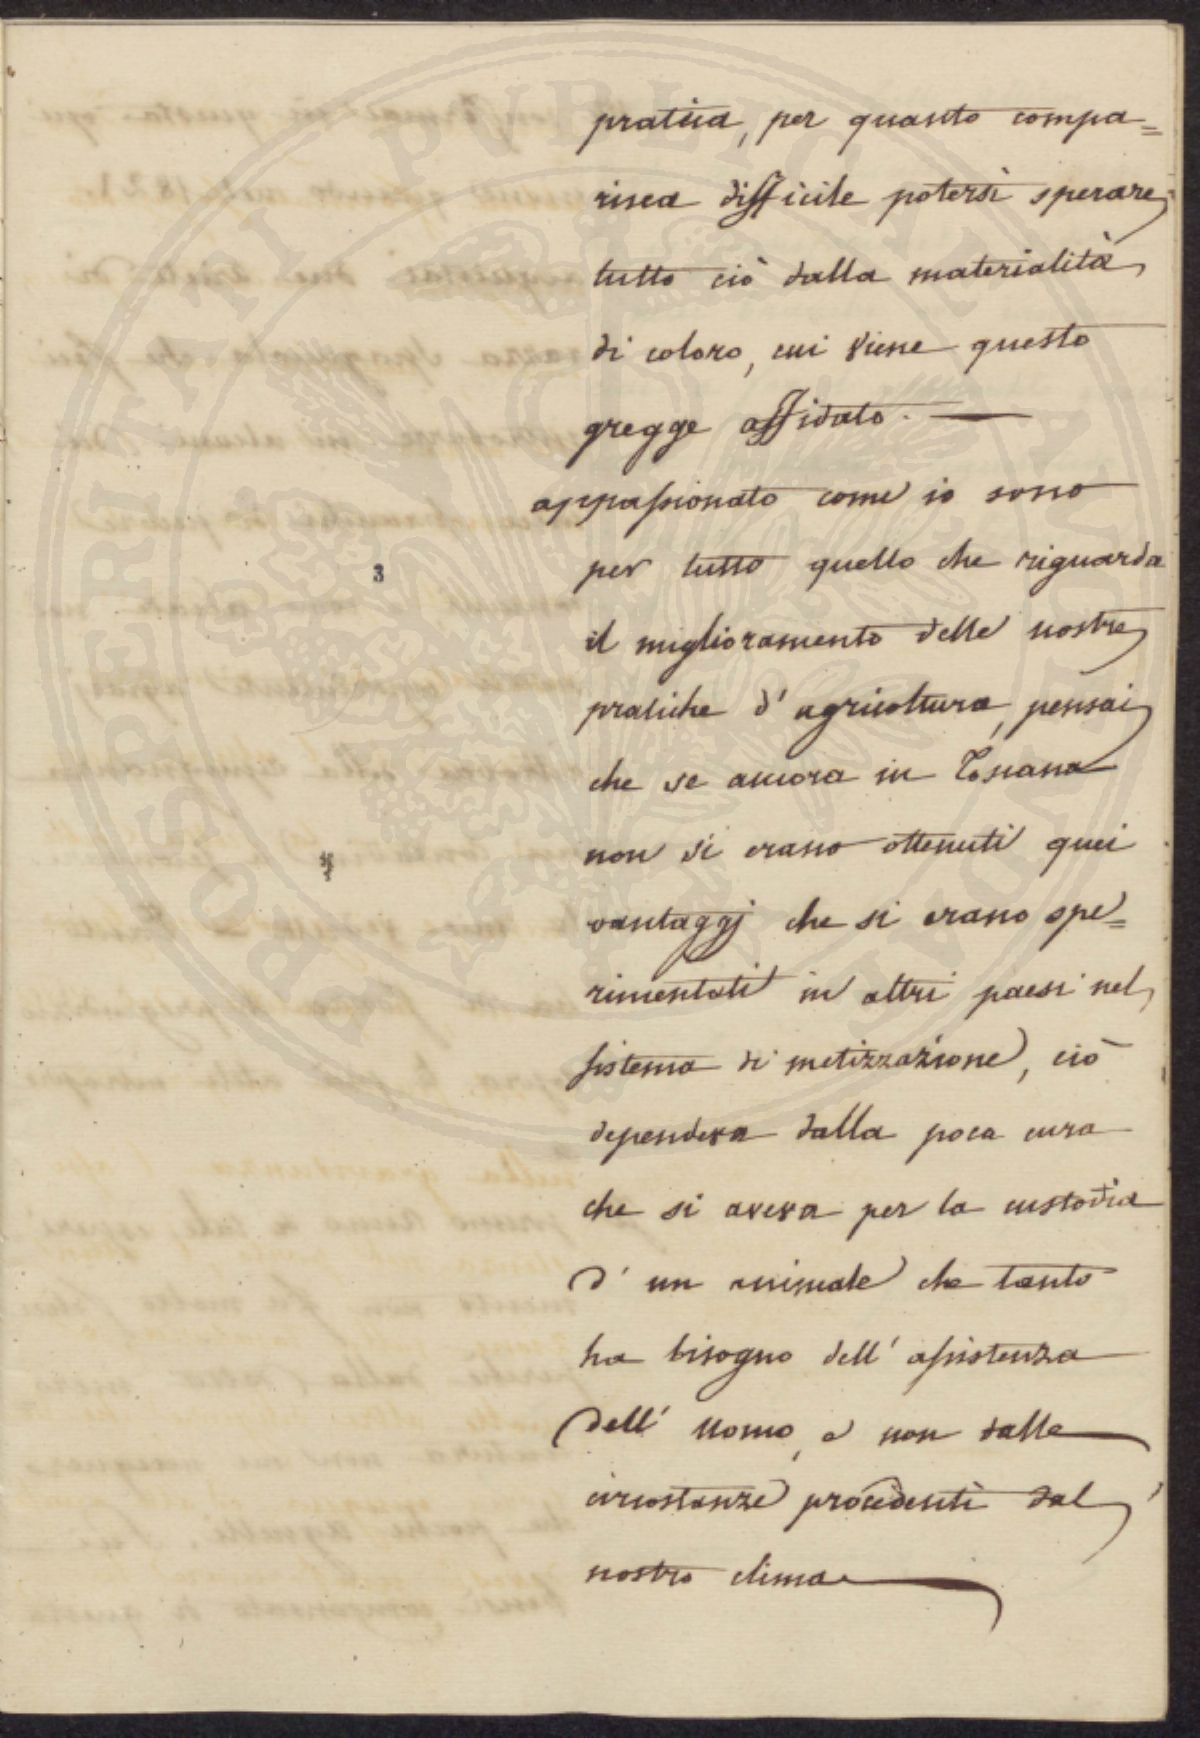 pratica, per quanto compa=
risca difficile potersi sperare
tutto ciò dalla materialità
di coloro, cui viene questo
gregge affidato.
appassionato come io sono
per tutto quello che riguarda
il miglioramento delle nostre
pratiche d' agricoltura, pensai
che se ancora in Toscana
non si erano ottenuti quei
vantaggj che si erano spe=
rimentati in altri paesi nel
sistema di metizzazione, ciò
dependeva dalla poca cura
che si aveva per la custodia
d' un animale che tanto
ha bisogno dell' assistenza
dell' Uomo, e non dalle
circostanze procedenti dal
nostro clima
3
PROSPERITATI PUBLICAE AUGENDAE